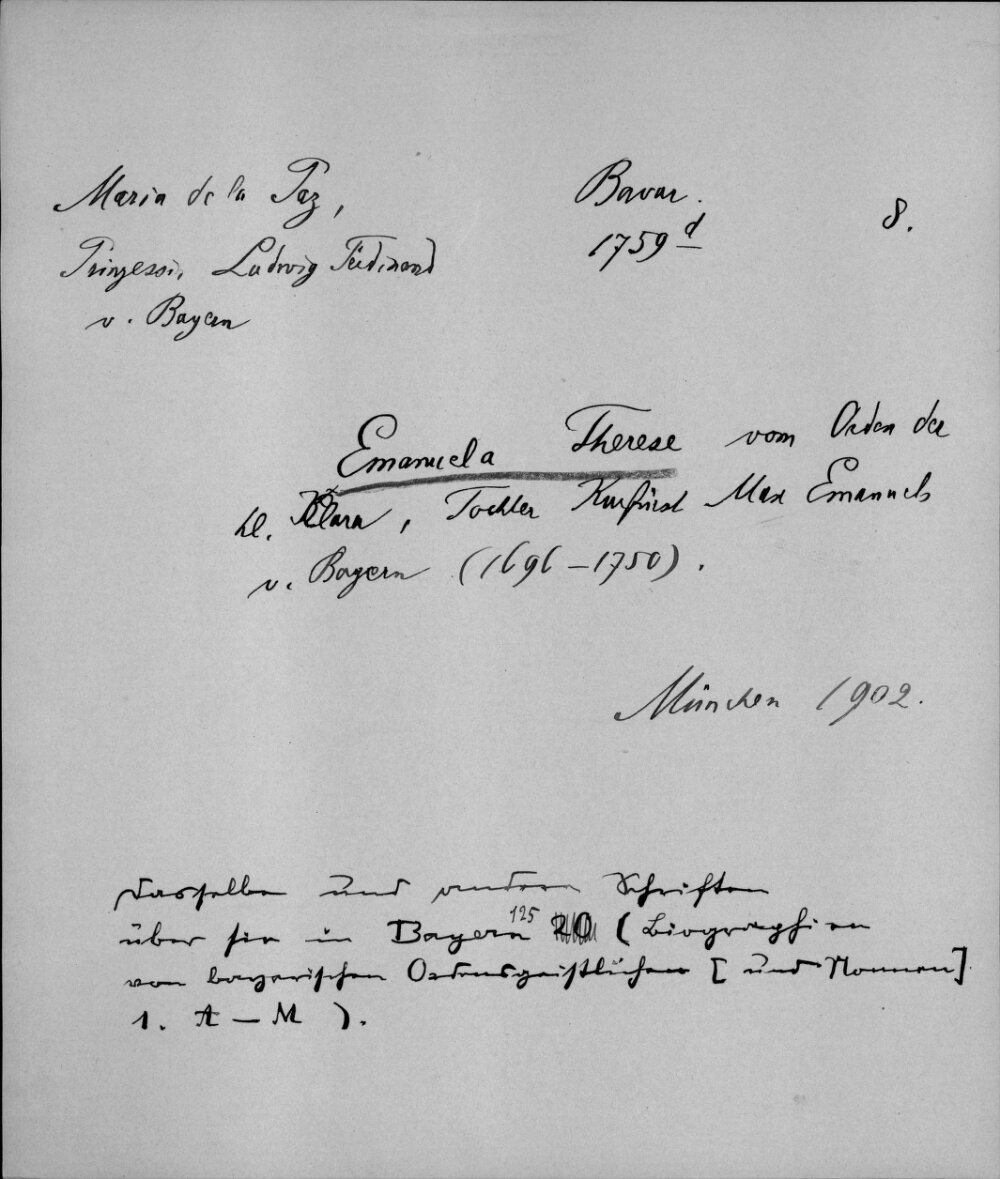 Maria de la Paz,
Bavar.
8.
Prinzessin Ludwig Ferdinand
1759 d
v. Bayern
Emanuela Therese vom Orden der
hl. Klara, Tochter Kurfürst Max Emanuels
v. Bayern (1696-1750).
München 1902.
Dasselbe und andere Schriften
über sie in Bayern 125 (Biographien
von bayerischen Ordensgeistlichen [und Nonnen]
1. A - M ).